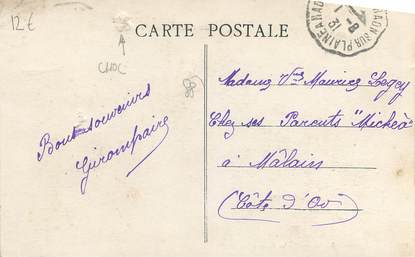 12 €
CHOC
CARTE POSTALE
RAON SUR PLAINE
Bons souvenirs
Girompaire
Madame Vve Maurice
Chez ses Parents "Michéa"
à Mâlain
(Côte d'Or)